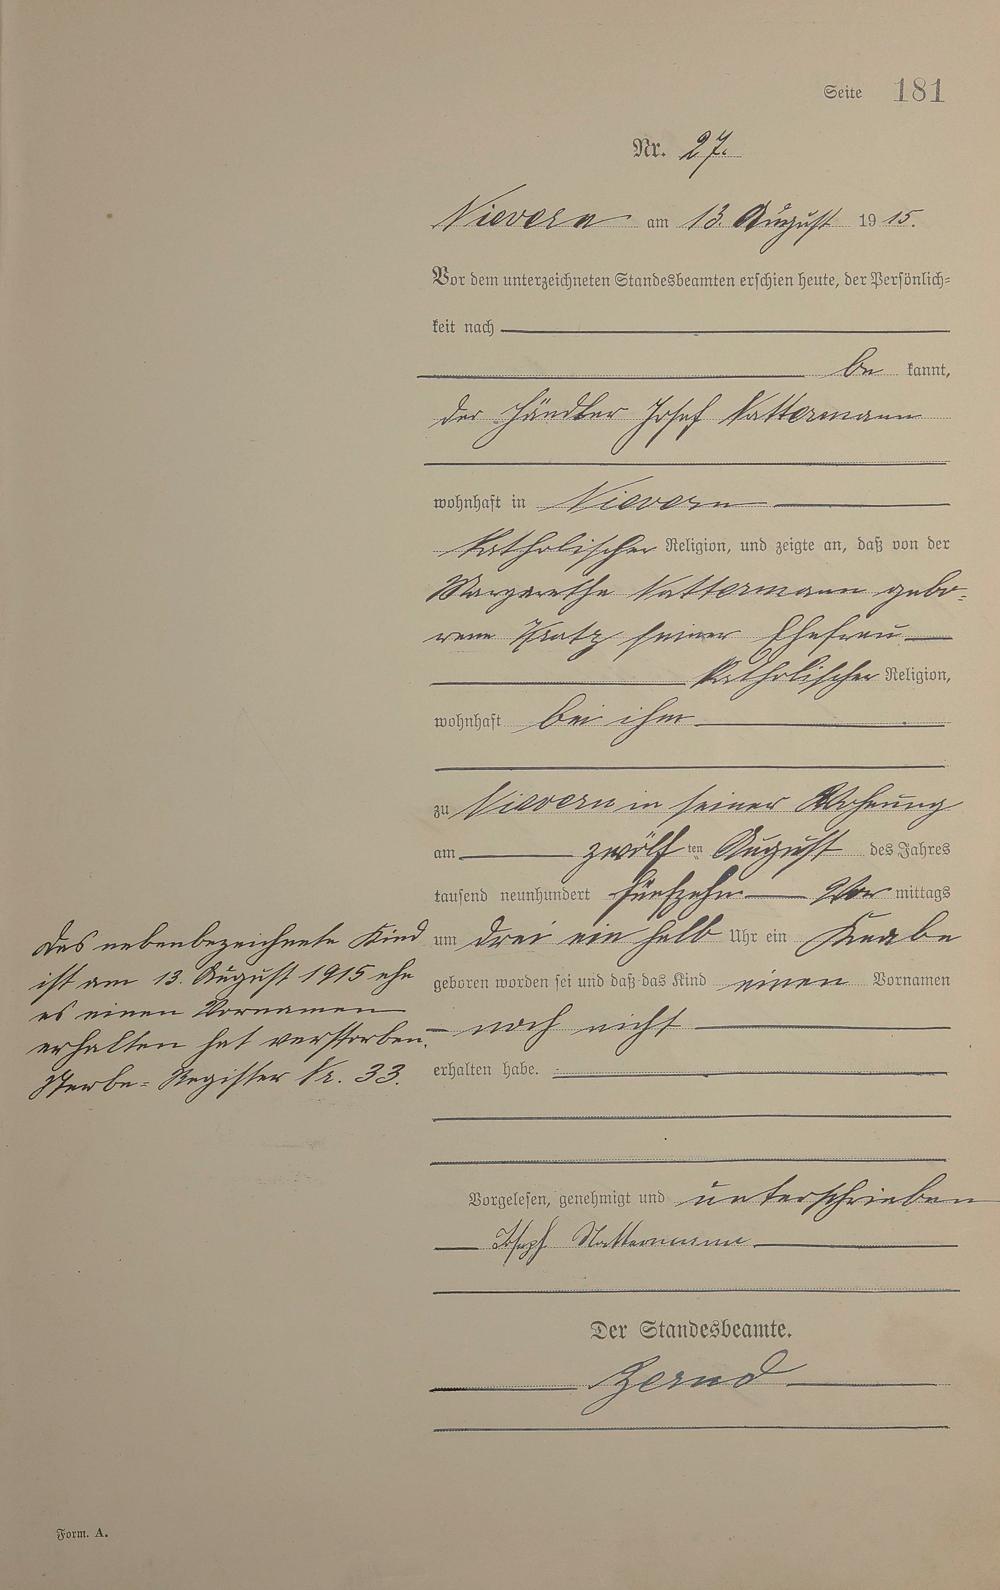 Seite 181
Nr. 27.
Nievern am 13. August 1915.
Vor dem unterzeichneten Standesbeamten erschien heute, der Persönlich=
keit nach
be kannt,
der Händler Josef Nattermann
wohnhaft in Nievern
katholischer Religion, und zeigte an, daß von der
Margarethe Nattermann gebo=
rene seiner Ehefrau
katholischer Religion,
wohnhaft bei ihm
zu Nievern in seiner Wohnung
am zwölf ten August des Jahres
tausend neunhundert fünfzehn Vor mittags
um drei ein halb Uhr ein Knabe
geboren worden sei und daß das Kind einen Vornamen
noch nicht
erhalten habe.
Das nebenbezeichnete Kind
ist am 13. August 1915 ehe
es einen Vornamen
erhalten hat verstorben.
Sterbe=Register Nr. 33.
Vorgelesen, genehmigt und unterschrieben
Joseph Nattermann
Der Standesbeamte.
Form. A.